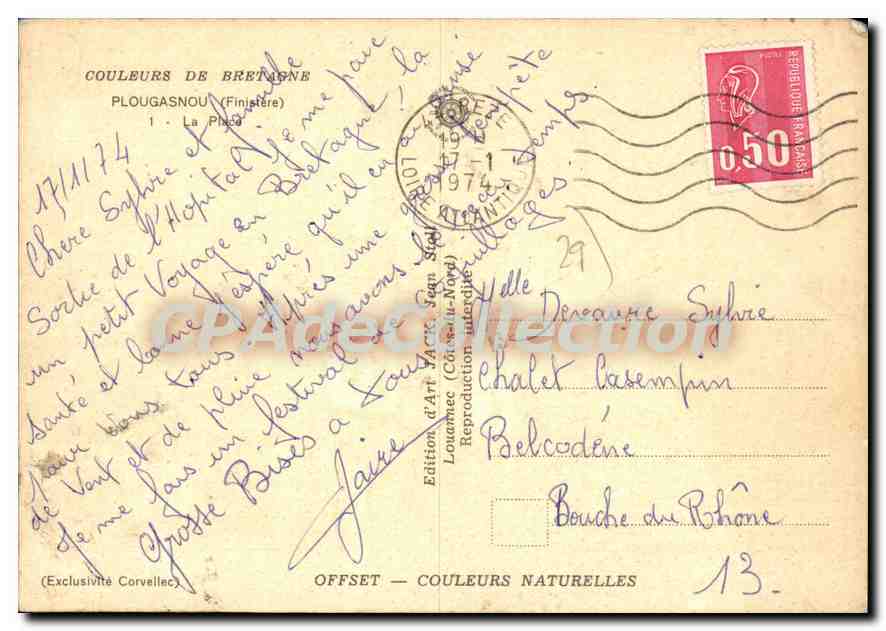 COULEURS DE BRETAGNE
PLOUGASNOU (Finistère)
1 - La Place
17/1/74
Chère Sylvie et famille
Sortie de l'Hopital, je me paie
un petit Voyage en Bretagne, la
santé est bonne j'espère qu'il en a
pour vous tous Après une grosse tempête
de Vent et de pluie nous avons le beau temps
Je me fais un festival de Coquillages.
Grosse Bises a tous
REZE
19 H
17 - 1
1974
LOIRE ATLANTIQUE
REPUBLIQUE FRANÇAISE
0,50
29
Melle
Sylvie
Chalet Casempin
Belcodène
Bouche du Rhône
13.
Edition d'Art JACK, Jean Stoll
Louannec (Côtes-du-Nord)
Reproduction interdite
CPAdeCollection
(Exclusivité Corvellec)
OFFSET — COULEURS NATURELLES